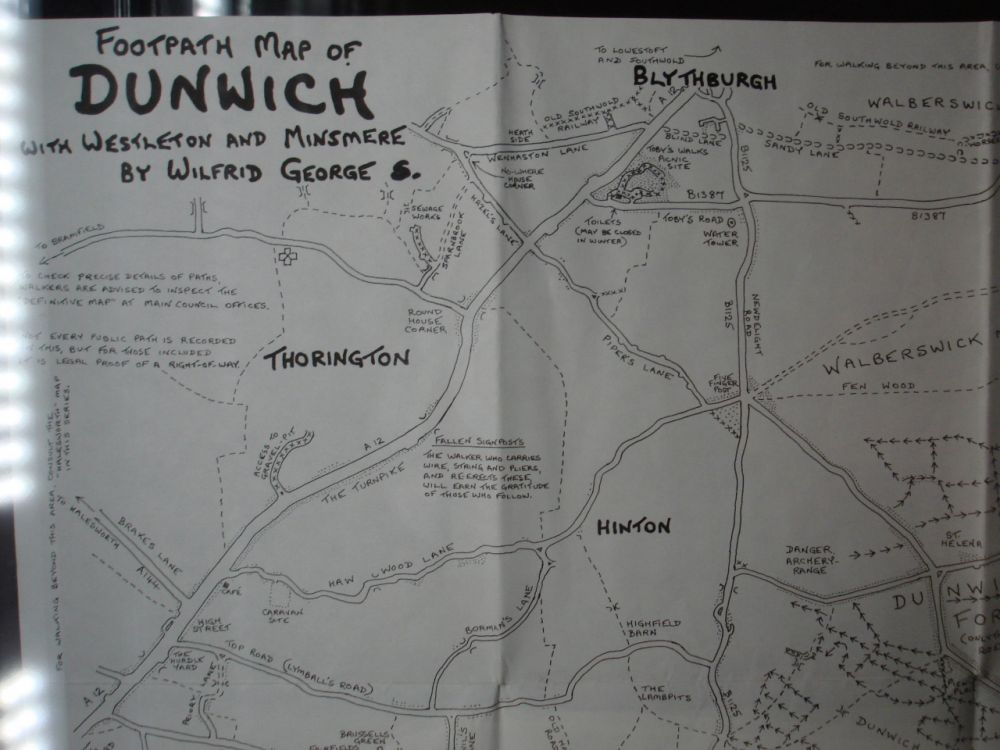 FOOTPATH MAP OF
DUNWICH
WITH WESTLETON AND MINSMERE
BY WILFRID GEORGE S.
TO LOWESTOFT
AND SOUTHWOLD
BLYTHBURGH
FOR WALKING BEYOND THIS AREA,
WALBERSWIC
OLD
SOUTHWOLD RAILWAY
A 12
OLD SOUTHWOLD
RAILWAY
HEATH
SIDE
WENHASTON LANE
NO-WHERE
HOUSE
CORNER
BLIND LANE
TOBY'S WALKS
PICNIC
SITE
SANDY LANE
B1125
B1387
B1387
TOILETS
(MAY BE CLOSED
IN WINTER)
TOBY'S ROAD
WATER
TOWER
HAZEL'S LANE
SEWAGE
WORKS
SPARNBROOK
LANE
TO BRAMFIELD
TO CHECK PRECISE DETAILS OF PATHS,
WALKERS ARE ADVISED TO INSPECT THE
"DEFINITIVE MAP" AT MAIN COUNCIL OFFICES.
NOT EVERY PUBLIC PATH IS RECORDED
THIS, BUT FOR THOSE INCLUDED
IS LEGAL PROOF OF A RIGHT-OF-WAY.
ROUND
HOUSE
CORNER
THORINGTON
B1125
NEWDELIGHT
ROAD
PIPER'S LANE
WALBERSWICK
FEN WOOD
FIVE
FINGER
POST
FOR WALKING BEYOND THIS AREA, CONSULT THE
"HALESWORTH" MAP
IN THIS SERIES.
ACCESS TO
GRAVEL PIT
A 12
THE TURNPIKE
FALLEN SIGNPOSTS
THE WALKER WHO CARRIES
WIRE, STRING AND PLIERS,
AND RE-ERECTS THESE,
WILL EARN THE GRATITUDE
OF THOSE WHO FOLLOW.
HINTON
TO
HALESWORTH
BRAKES LANE
A144
HAW WOOD LANE
DANGER
ARCHERY-
RANGE
ST.
HELENA
DU
NWI
FO
(ONLY
CAFE
CARAVAN
SITE
HIGH
STREET
BORMIN'S LANE
HIGHFIELD
BARN
TOP ROAD (LYMBALL'S ROAD)
THE
HURDLE
YARD
PRIORY LANE
A 12
THE
LAMBPITS
B1125
DUNWICH
BRUSSELLS
GREEN